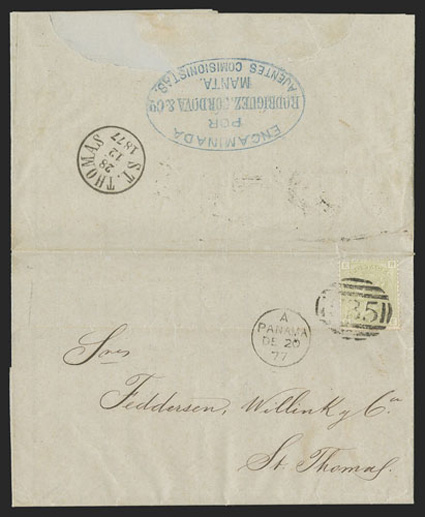 ENCAMINADA
POR
RODRIGUEZ, CORDOVA & Co
MANTA.
AJENTES COMISIONISTAS.
ST. THOMAS
28
12
1877
A
PANAMA
DE 20
77
35
Sres
Feddersen, Willink y Ca
St. Thomas.